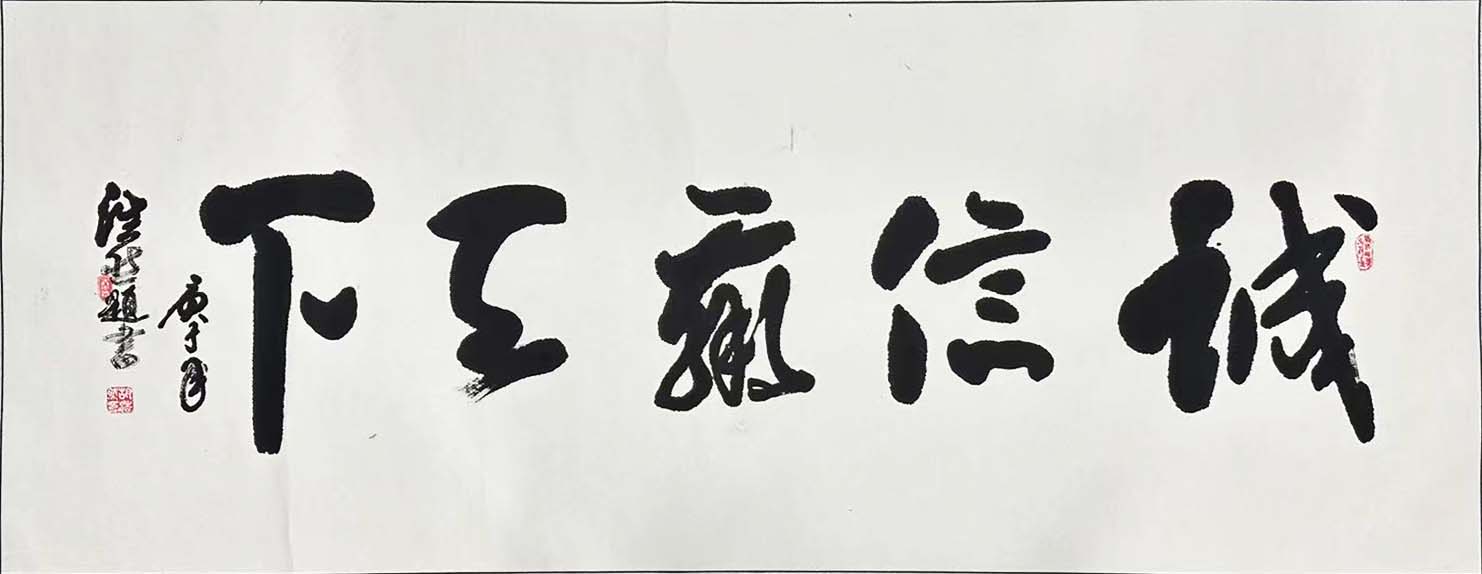 诚信赢天下
庚子年
题书